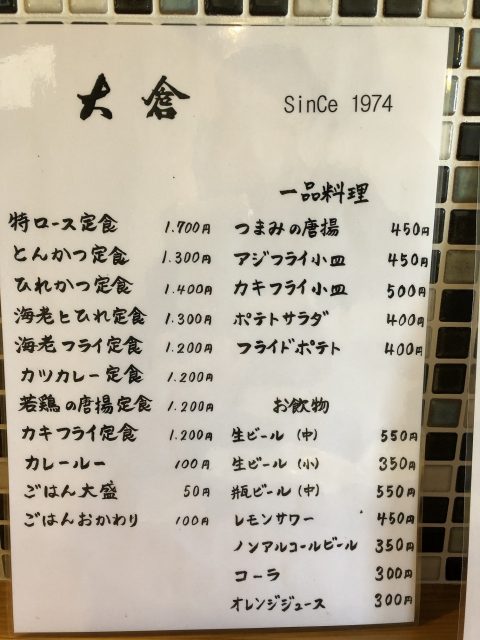 大倉
SinCe 1974
特ロース定食 1.700円
とんかつ定食 1.300円
ひれかつ定食 1.400円
海老とひれ定食 1.300円
海老フライ定食 1.200円
カツカレー定食 1.200円
若鶏の唐揚定食 1.200円
カキフライ定食 1.200円
カレールー 100円
ごはん大盛 50円
ごはんおかわり 100円
一品料理
つまみの唐揚 450円
アジフライ小皿 450円
カキフライ小皿 500円
ポテトサラダ 400円
フライドポテト 400円
お飲物
生ビール（中） 550円
生ビール（小） 350円
瓶ビール（中） 550円
レモンサワー 450円
ノンアルコールビール 350円
コーラ 300円
オレンジジュース 300円